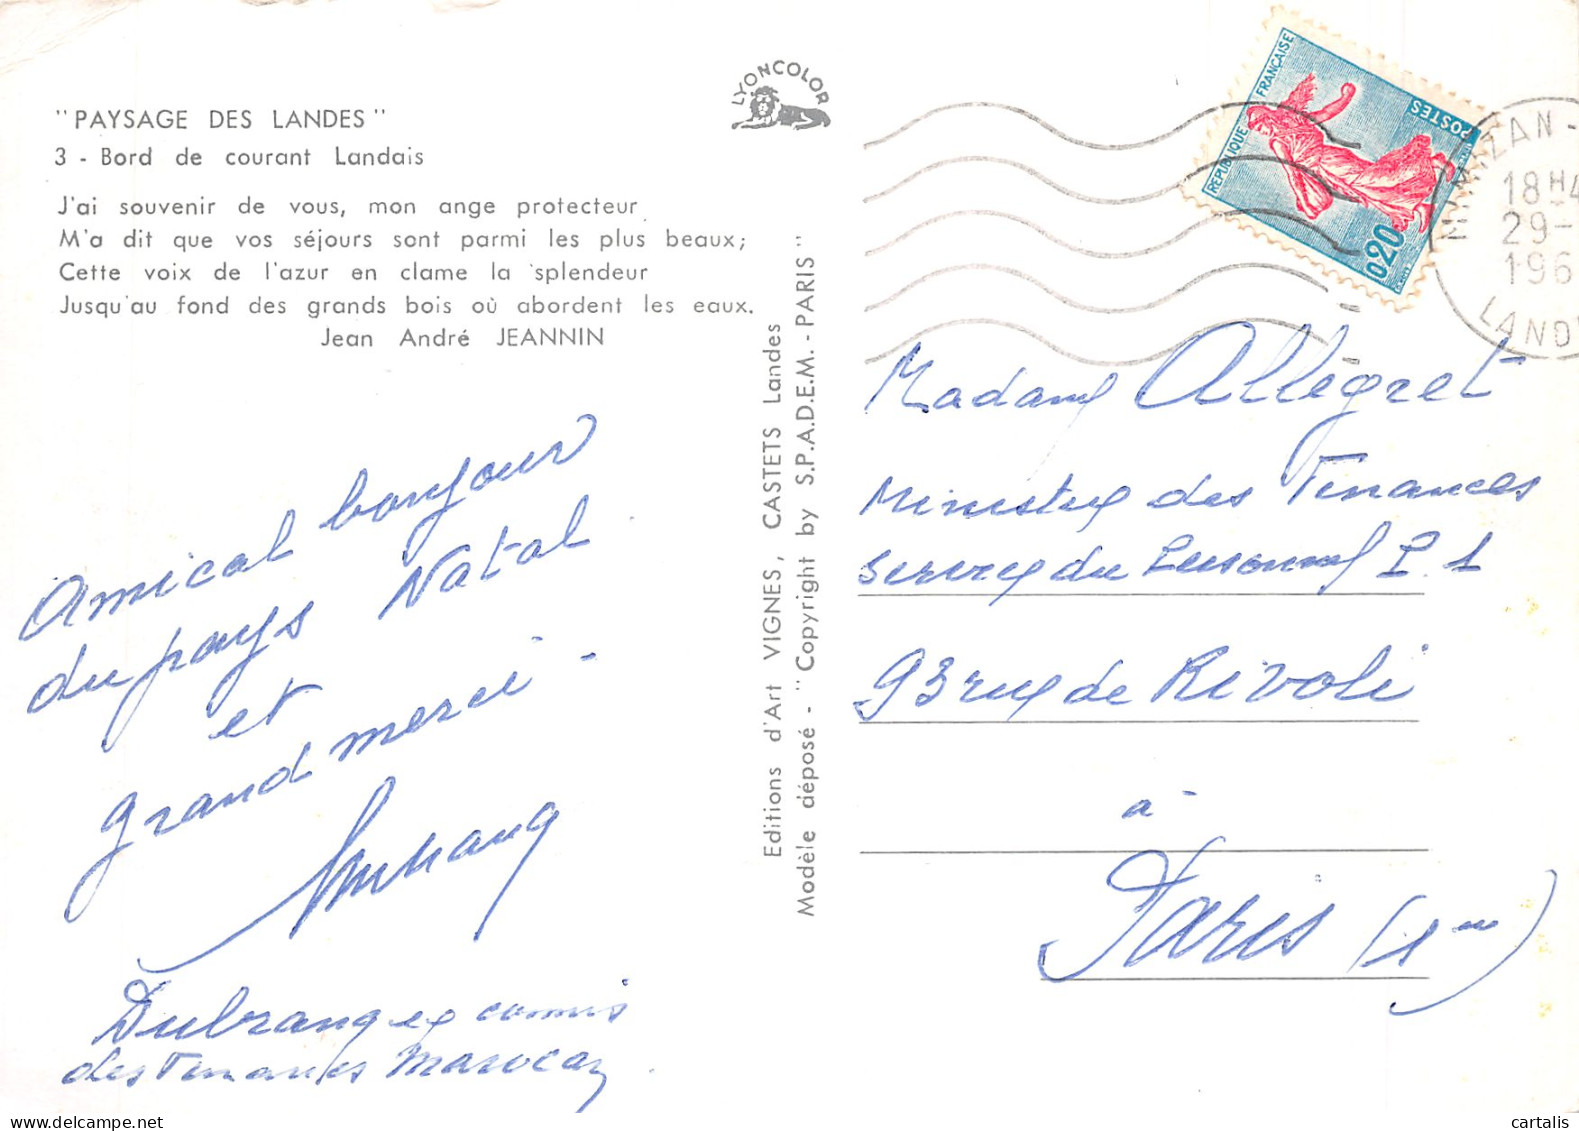 "PAYSAGE DES LANDES"
3 - Bord de courant Landais
J'ai souvenir de vous, mon ange protecteur
M'a dit que vos séjours sont parmi les plus beaux;
Cette voix de l'azur en clame la splendeur
Jusqu'au fond des grands bois où abordent les eaux.
Jean André JEANNIN
Amical bonjour
du pays Natal
et
grand merci -
Dubrang ex comis
des Finances Marocain
LYONCOLOR
Editions d'Art VIGNES, CASTETS Landes
Modèle déposé - "Copyright by S.P.A.D.E.M. - PARIS"
REPUBLIQUE FRANÇAISE
POSTES
0,20
MIMIZAN -
18H4
29-
196
LAND
Madame Allégret
Ministre des Finances
Service du Personnel P. 1
93 rue de Rivoli
à
Paris (1me)
cartalis
delcampe.net